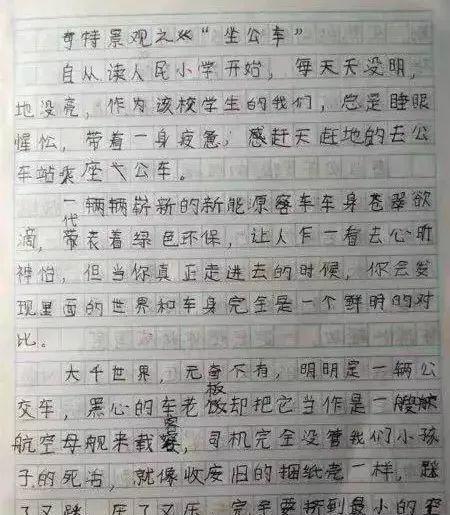 奇特景观之"坐公车"
自从读人民小学开始，每天天没明，
地没亮，作为该校学生的我们，总是睡眼
惺忪，带着一身疲惫，感赶天赶地的去公
车站乘座公车。
一辆辆崭新的新能原客车车身苍翠欲
滴，代表着绿色环保，让人乍一看去心旷
神怡，但当你真正走进去的时候，你会发
现里面的世界和车身完全是一个鲜明的对
比。
大千世界，元奇不有，明明是一辆公
交车，黑心的车老板却把它当作是一艘
航空母舰来载客，司机完全没管我们小孩
子的死活，就像收废旧的捆纸壳一样，踩
了又踩，压了又压，完全要挤到最小的空